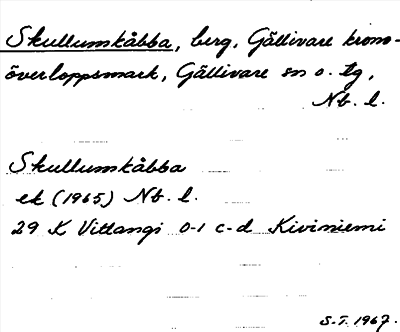 Skullumskåbba, berg, Gällivare krono-
överloppsmark, Gällivare sn o. tg,
Nb. l.
Skullumskåbba
ek (1965) Nb. l.
29 K Vittangi 0-1 c-d Kiviniemi
S.T. 1967.